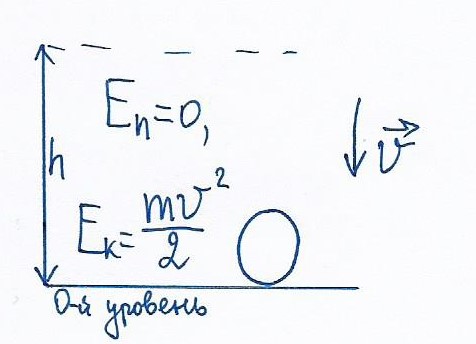 Eп=0,
h
v⃗
Eк=mv²/2
0-й уровень